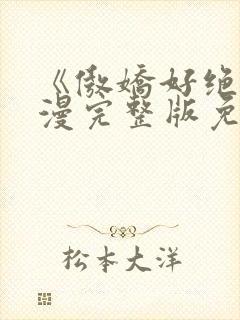 《傲娇好绝
漫完整版免
松本大洋